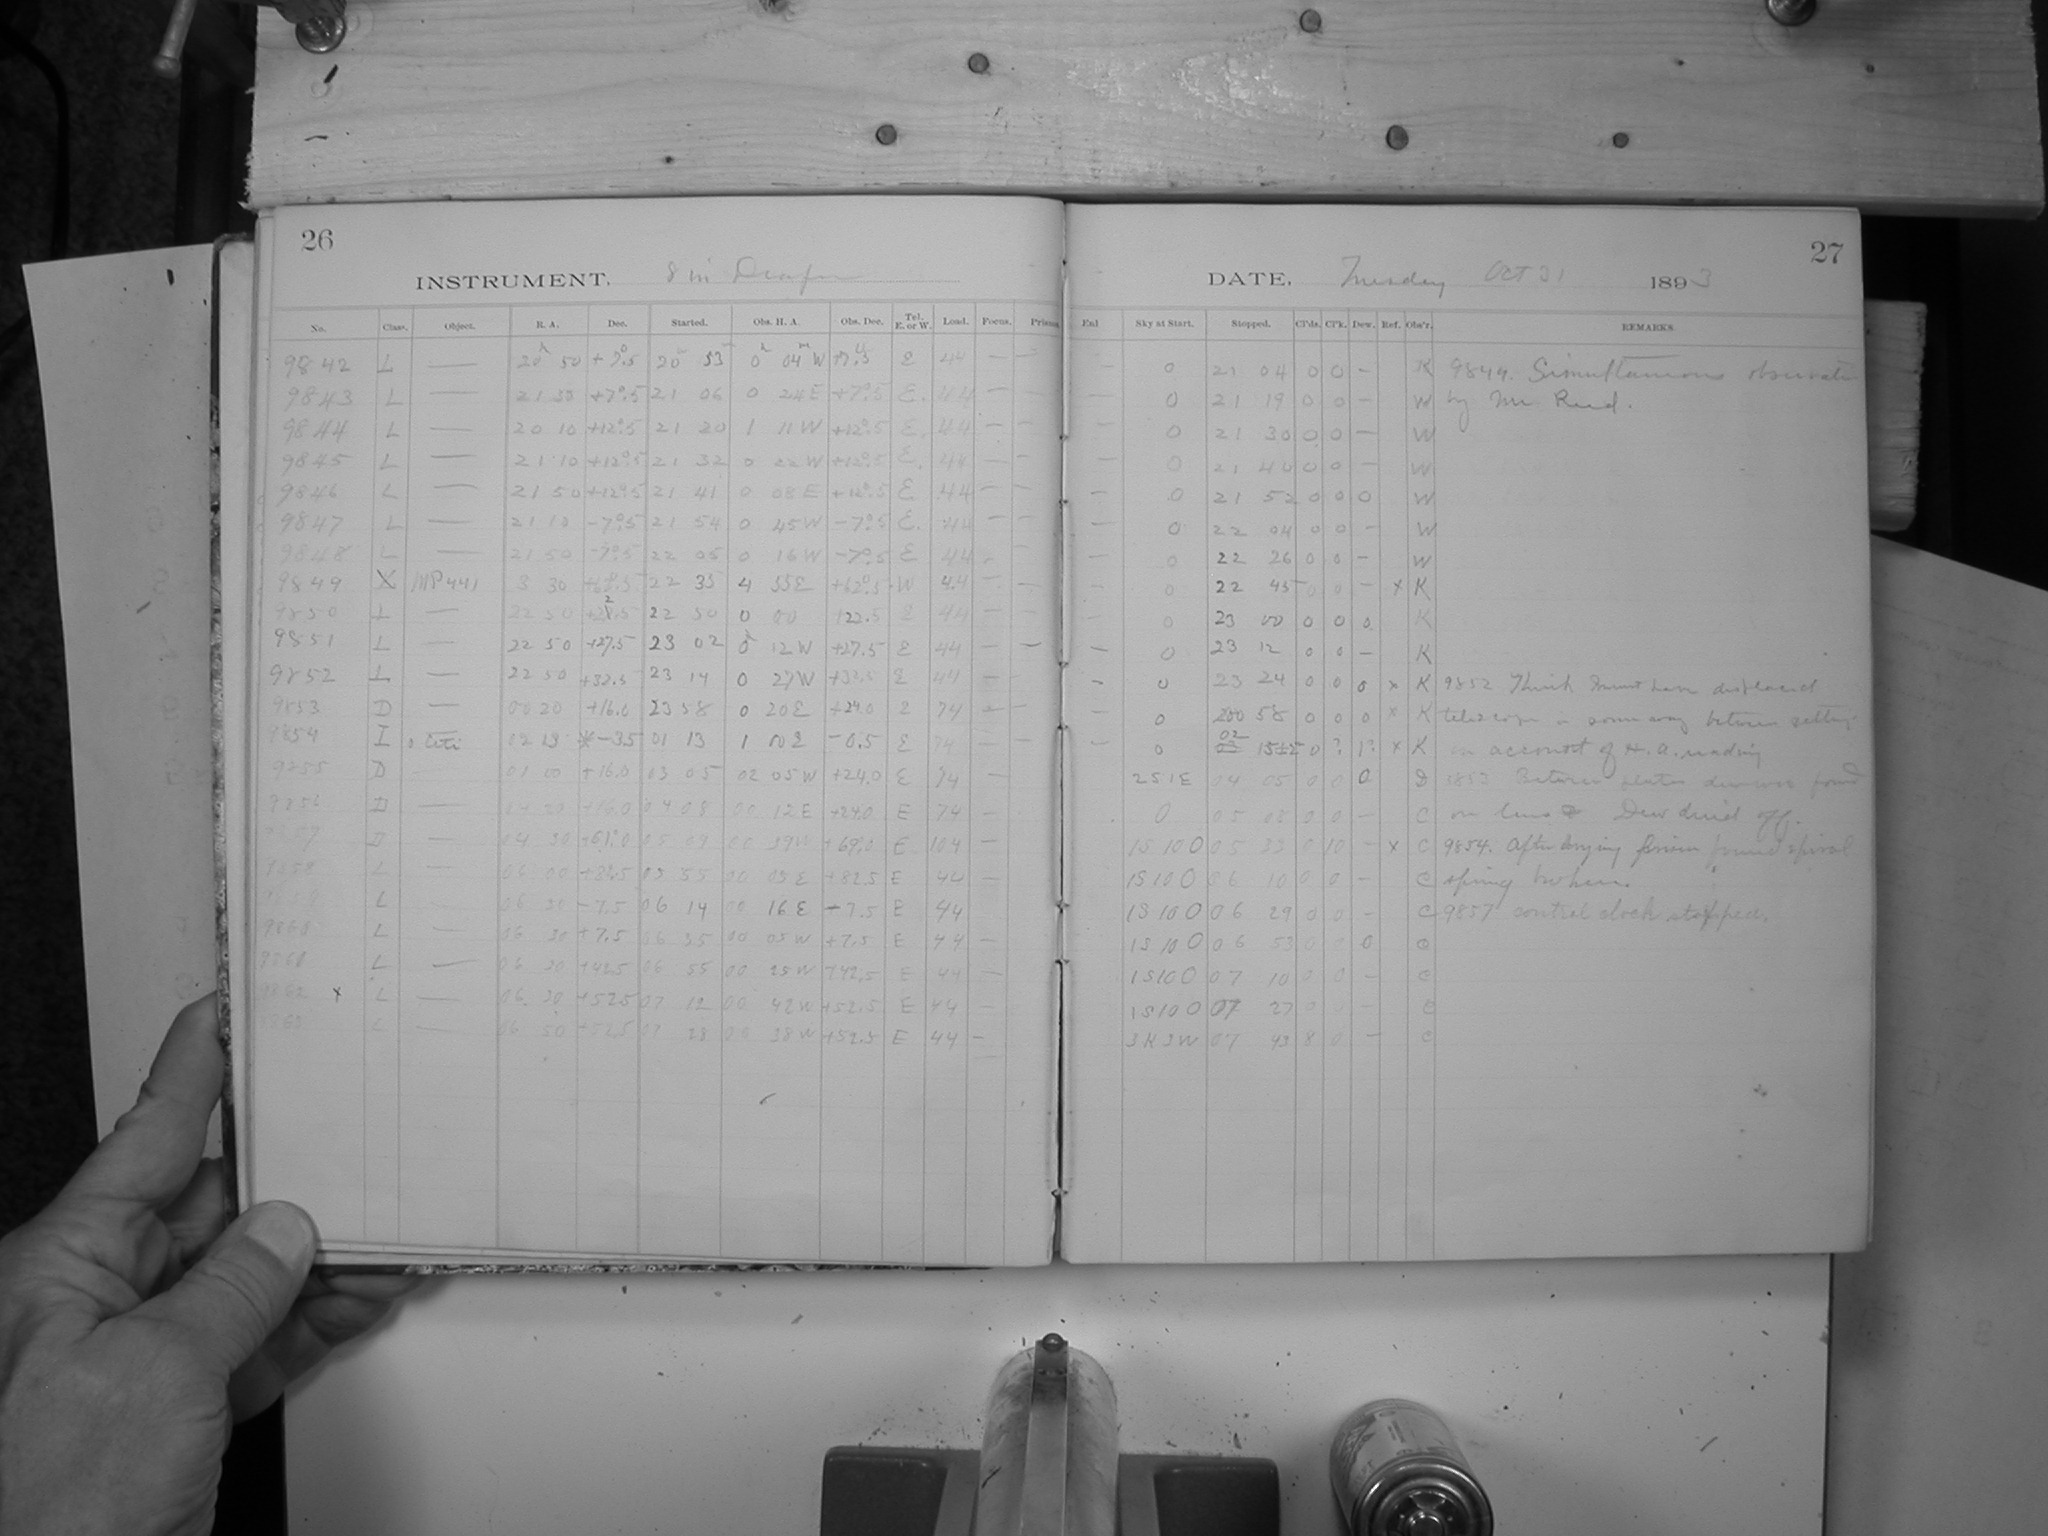 26
INSTRUMENT. 8 in Draper
No. Class. Object. R. A. Dec. Started. Obs. H. A. Obs. Dec. Tel. E. or W. Load. Focus. Prisms.
9842 L — 20 50 +7.5 20 53 0 04 W +7.5 E 44 — —
9843 L — 21 30 +7.5 21 06 0 24 E +7.5 E. 44 — —
9844 L — 20 10 +12.5 21 20 1 11 W +12.5 E. 44 — —
9845 L — 21 10 +12.5 21 32 0 22 W +12.5 E. 44 — —
9846 L — 21 50 +12.5 21 41 0 08 E +12.5 E 44 — —
9847 L — 21 10 -7.5 21 54 0 45 W -7.5 E. 44 — —
9848 L — 21 50 -7.5 22 05 0 16 W -7.5 E 44 - —
9849 X MP 441 3 30 22 35 4 55 E +62.5 W 44 — —
9850 L — 22 50 22 50 0 00 +22.5 E 44 — —
9851 L — 22 50 +27.5 23 02 0 12 W +27.5 E 44 — —
9852 L — 22 50 +32.5 23 14 0 27 W +32.5 E 44 — —
9853 D — 00 20 +16.0 23 58 0 20 E +24.0 E 74 — —
9854 I o Ceti 02 13 * -3.5 01 13 1 00 E -0.5 E 74 — —
9855 D — 01 00 +16.0 03 05 02 05 W +24.0 E 74 —
9856 D — 04 20 +16.0 04 08 00 12 E +24.0 E 74 —
9857 D — 04 30 +61.0 05 09 00 39 W +69.0 E 104 —
9858 L — 06 00 +82.5 05 55 00 05 E +82.5 E 44 —
9859 L — 06 30 -7.5 06 14 00 16 E -7.5 E 44
9860 L — 06 30 +7.5 06 35 00 05 W +7.5 E 44 —
L — 06 30 +42.5 06 55 00 25 W +42.5 E 44 —
9862 x L — 06 30 +52.5 07 12 00 42 W +52.5 E 44 —
L — 06 50 +52.5 07 28 00 38 W +52.5 E 44 —
27
DATE, Tuesday Oct 31 1893
Enl Sky at Start. Stopped. Cl'ds. Cl'k. Dew. Ref. Obs'r. REMARKS
— 0 21 04 0 0 — K 9844. Simultaneous
— 0 21 19 0 0 — W by Mr Reed.
— 0 21 30 0 0 — W
— 0 21 40 0 0 — W
— 0 21 52 0 0 0 W
— 0 22 04 0 0 — W
— 0 22 26 0 0 — W
— 0 22 45 0 0 — x K
0 23 00 0 0 0 K
— 0 23 12 0 0 — K
— 0 23 24 0 0 0 x K 9852 Think must have displaced
— 0 58 0 0 0 x K telescope in some way between setting
— 0 02 0 ? 1? x K on account of H. A. reading
2S1E 04 05 0 0 0 D 9853 Between plates dew was found
0 05 05 0 0 — C on lens & Dew dried off.
1S 10 0 05 32 0 10 — x C 9854. After prism found spiral
1S 10 0 06 10 0 0 — C spring broken.
1S 10 0 06 29 0 0 — C 9857 control clock stopped.
1S 10 0 06 53 0 0 0 C
1S 10 0 07 10 0 0 — C
1S 10 0 07 27 0 0 — C
3K3W 07 43 8 0 — C